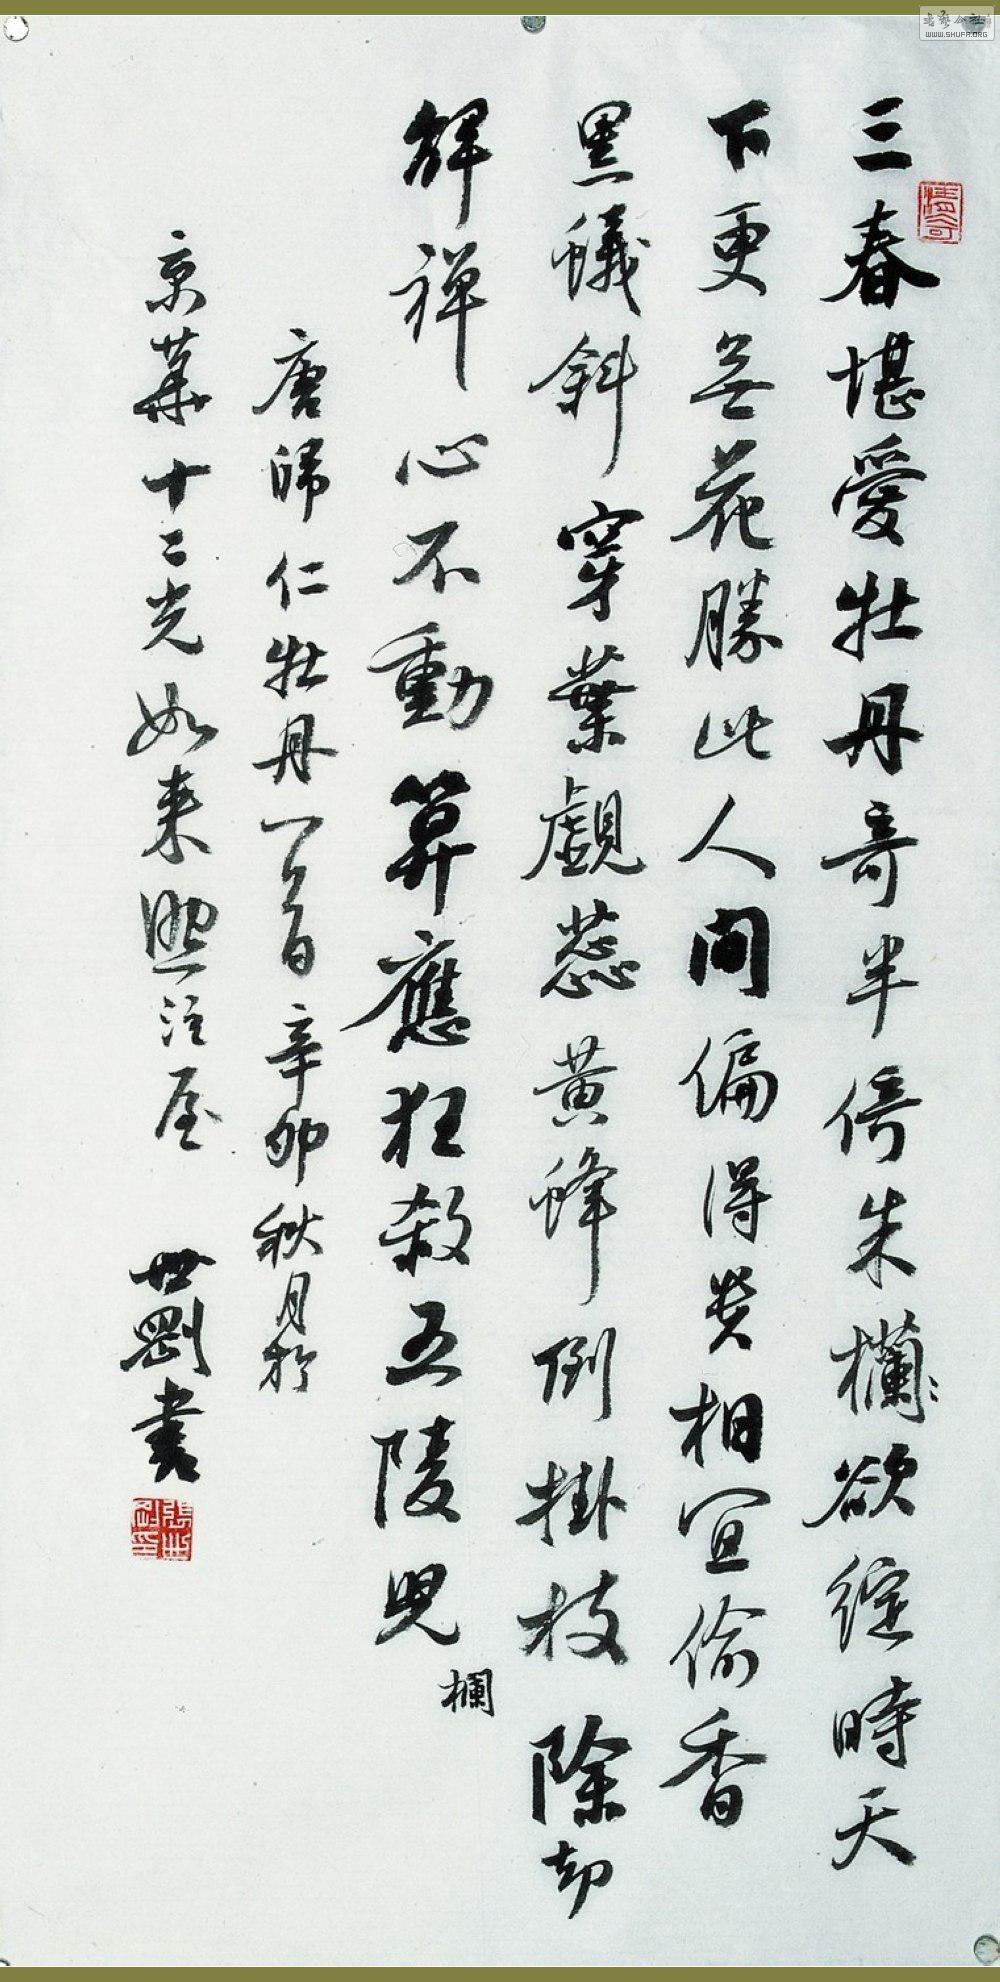 三春堪愛牡丹奇半倚朱欄欲綻時天
下更無花勝此人間偏得貴相宜偷香
黑蟻斜穿葉覷蕊黄蜂倒掛枝除却
解禪心不動算應狂殺五陵兒
欄
唐歸仁牡丹一首辛卯秋月於
京華十二光如来照注屋
世剛書
WWW.SHUFA.ORG